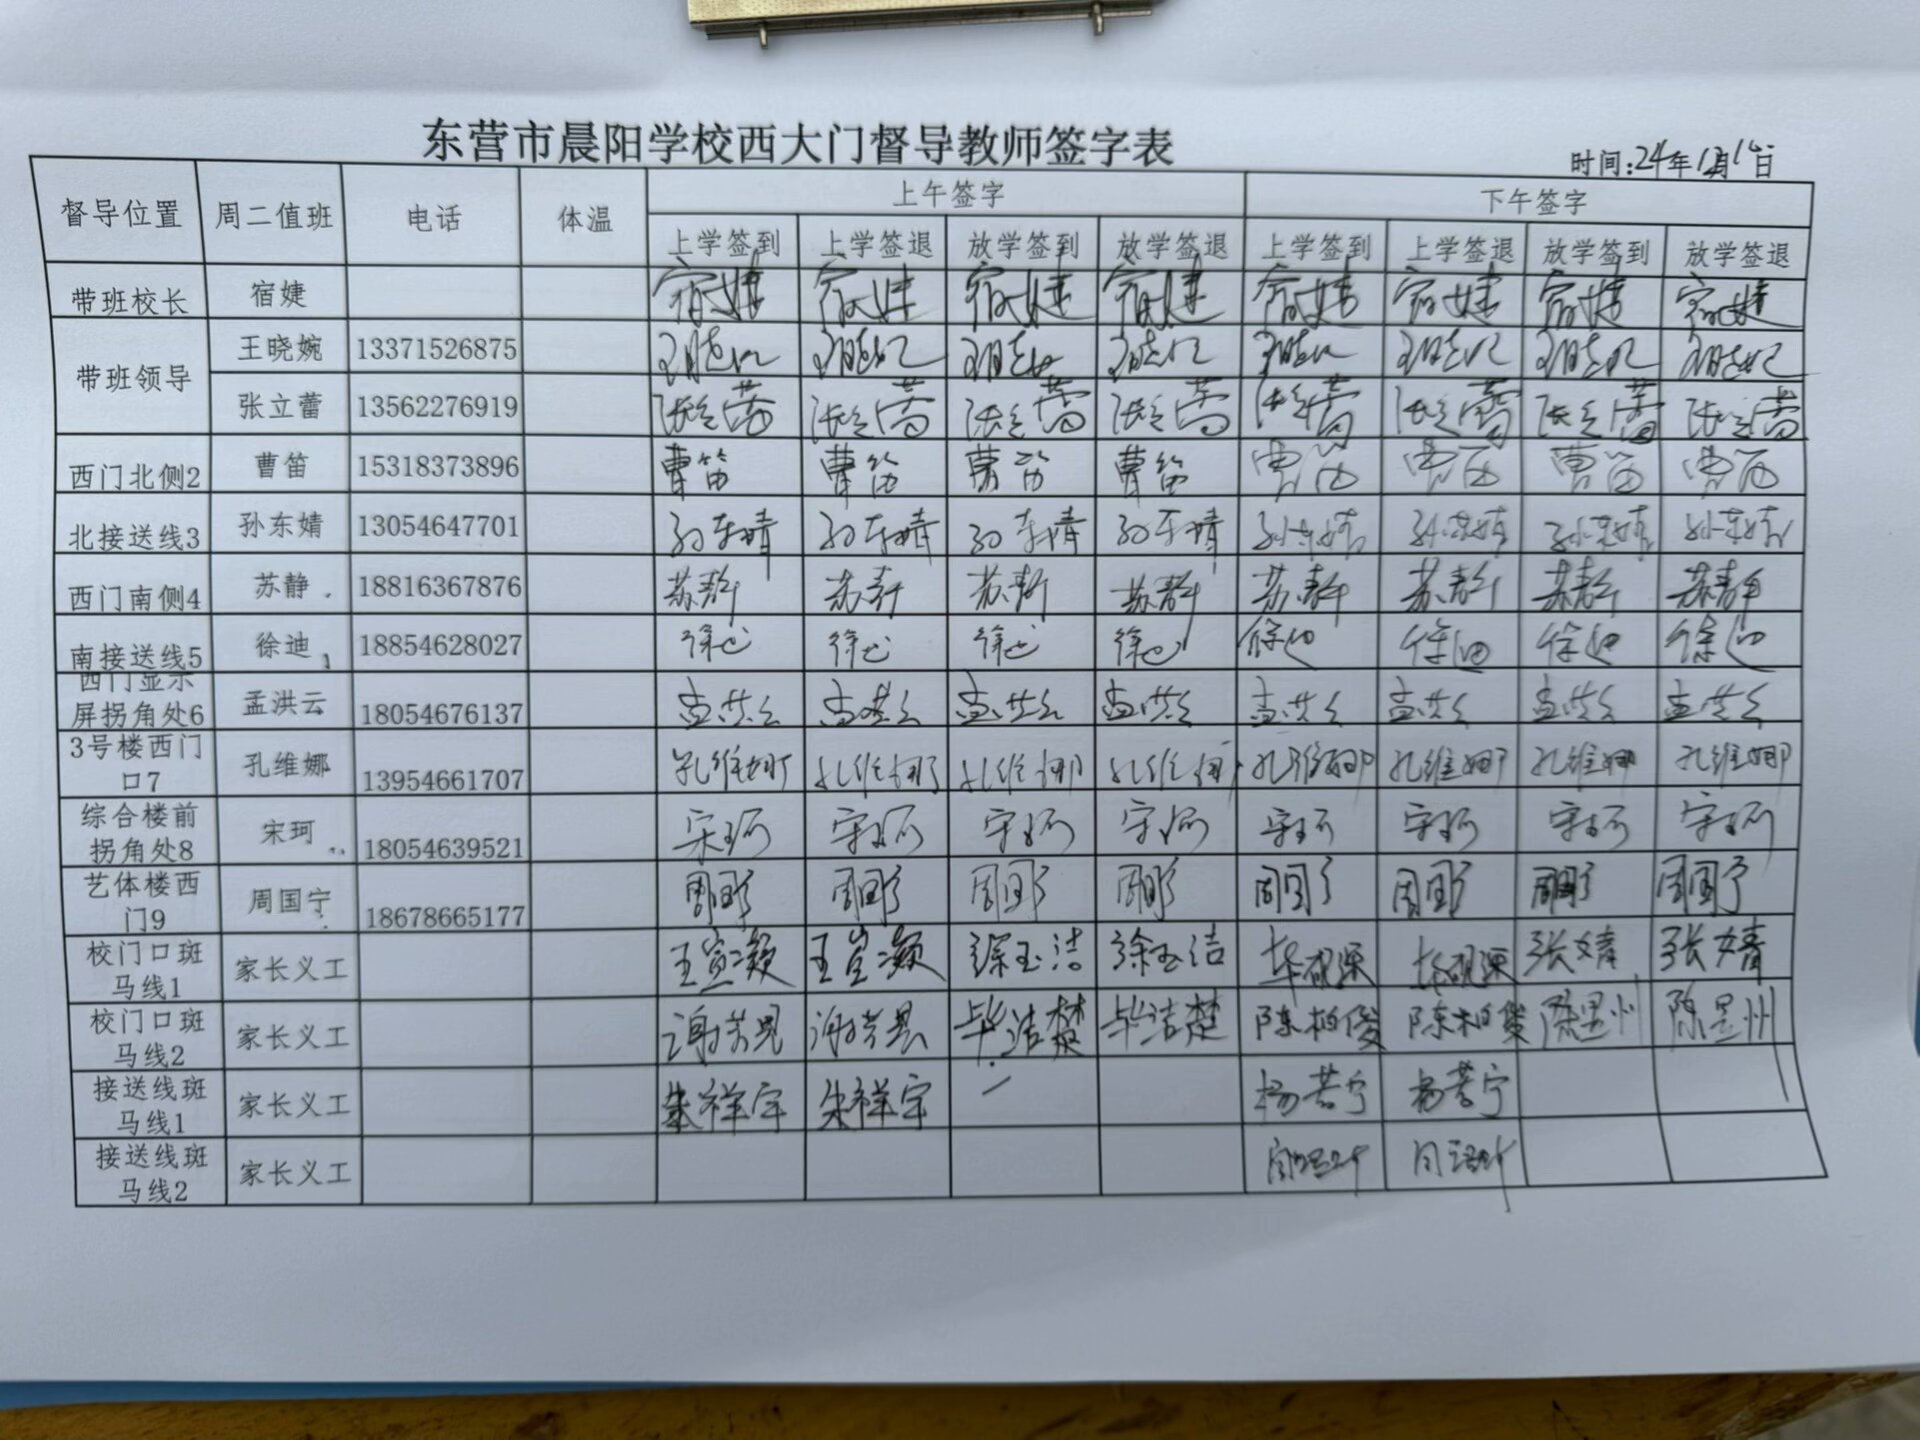 东营市晨阳学校西大门督导教师签字表
时间:24年12月1日
督导位置 周二值班 电话 体温 上午签字 下午签字
上学签到 上学签退 放学签到 放学签退 上学签到 上学签退 放学签到 放学签退
带班校长 宿婕 宿婕 宿婕 宿婕 宿婕 宿婕 宿婕 宿婕 宿婕
带班领导 王晓婉 13371526875
张立蕾 13562276919 张立蕾 张立蕾 张立蕾 张立蕾 张立蕾 张立蕾 张立蕾 张立蕾
西门北侧2 曹笛 15318373896 曹笛 曹笛 曹笛 曹笛 曹笛 曹笛 曹笛 曹笛
北接送线3 孙东婧 13054647701 孙东婧 孙东婧 孙东婧 孙东婧 孙东婧 孙东婧 孙东婧 孙东婧
西门南侧4 苏静 18816367876 苏静 苏静 苏静 苏静 苏静 苏静 苏静 苏静
南接送线5 徐迪 18854628027 徐迪 徐迪 徐迪 徐迪 徐迪 徐迪 徐迪 徐迪
西门显示
屏拐角处6 孟洪云 18054676137 孟洪云 孟洪云 孟洪云 孟洪云 孟洪云 孟洪云 孟洪云 孟洪云
3号楼西门
口7 孔维娜 13954661707 孔维娜 孔维娜 孔维娜 孔维娜 孔维娜 孔维娜 孔维娜 孔维娜
综合楼前
拐角处8 宋珂 18054639521 宋珂 宋珂 宋珂 宋珂 宋珂 宋珂 宋珂 宋珂
艺体楼西
门9 周国宁 18678665177 周国宁 周国宁 周国宁 周国宁 周国宁 周国宁 周国宁 周国宁
校门口斑
马线1 家长义工 王宣灏 王宣灏 徐玉洁 徐玉洁 张婧 张婧
校门口斑
马线2 家长义工 毕洁楚 毕洁楚 陈柏俊 陈柏俊 陈昱州 陈昱州
接送线斑
马线1 家长义工 朱祥宇 朱祥宇 杨若宁 杨若宁
接送线斑
马线2 家长义工